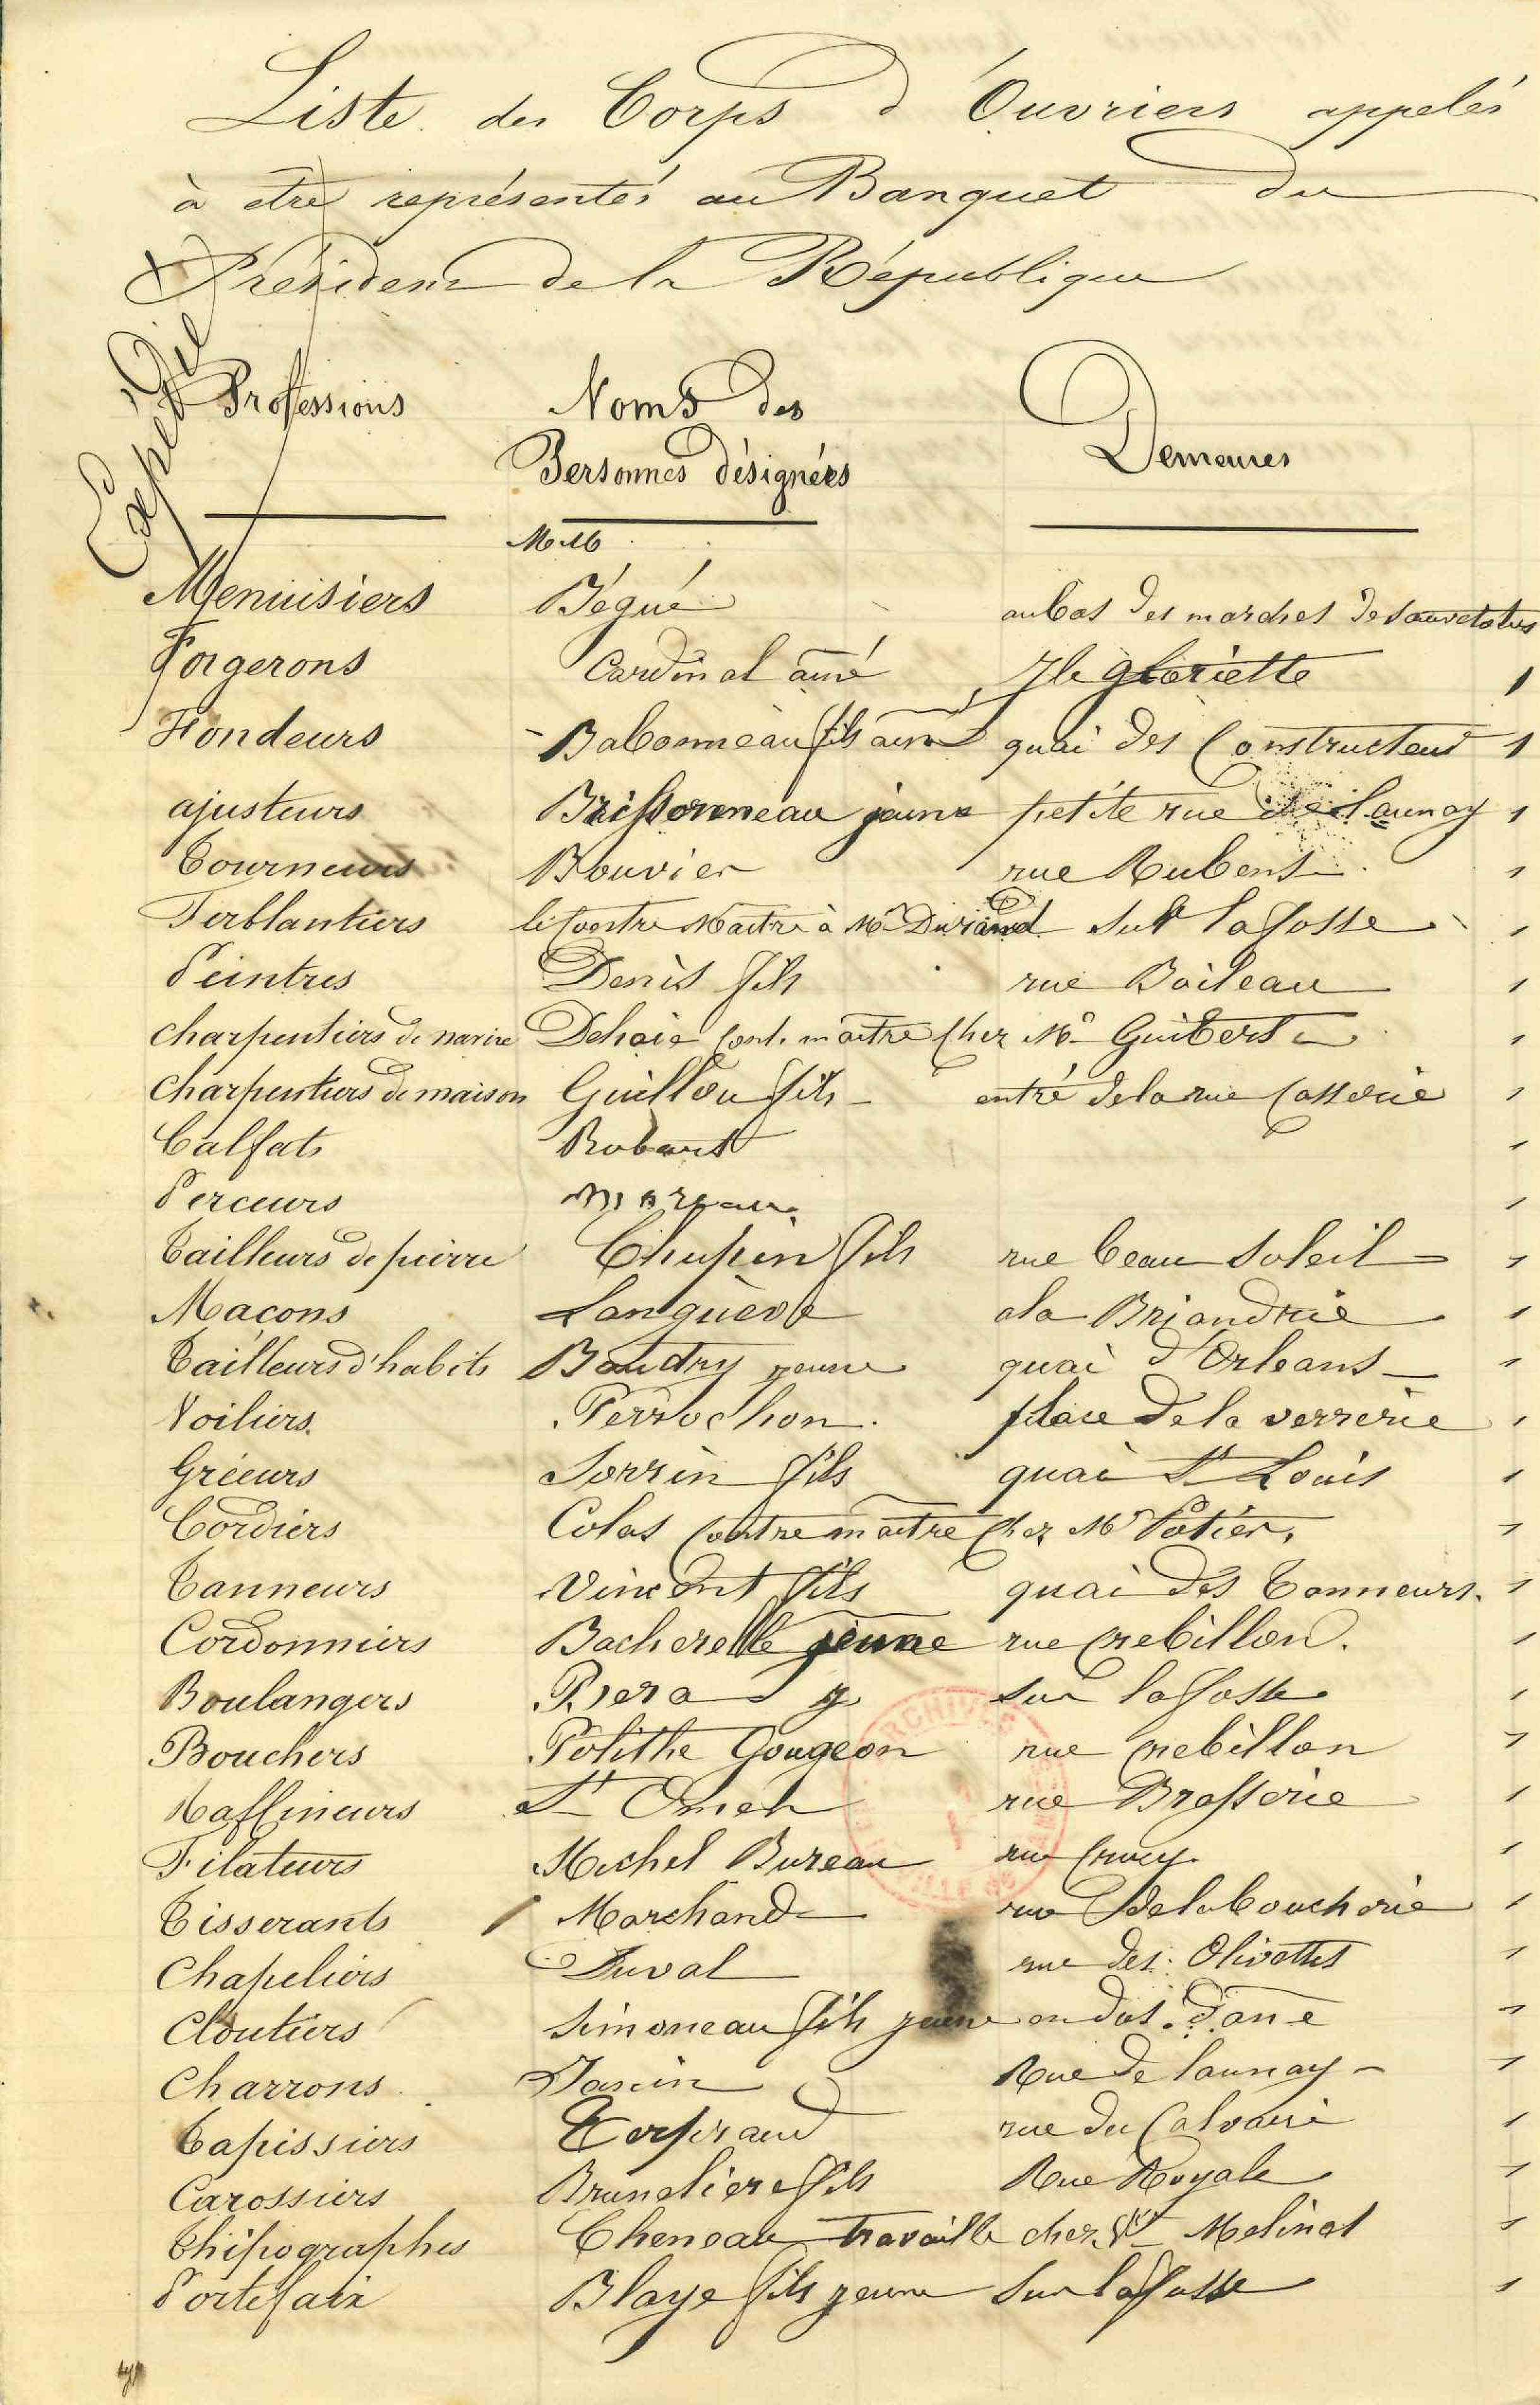 Liste des Corps d'Ouvriers appelés
à etre représentés au Banquet du
Président de la République
Expédié
Professions Noms des Personnes désignées Demeures
MM
Menuisiers Bégué au bas des marches de
Forgerons Cardinal ainé Ile gloriette 1
Fondeurs Babonneau fils ainé quai des Constructeurs 1
ajusteurs Brissonneau jeune petite rue de Launay 1
Tourneurs Bouvier rue Rubens 1
Ferblantiers le Contre Maitre à Mr Durand sur la fosse 1
Peintres Denis fils rue Boileau 1
charpentiers de navire Dehaie cont. maitre chez Mr Guibert 1
charpentiers de maison Guillou fils entré de la rue Casserie 1
Calfats Robart 1
Perceurs Moreau 1
Tailleurs de pierre Chupin fils rue beau Soleil 1
Macons Languève a la Briandrie 1
Tailleurs d'habits Baudry jeune quai d'Orleans 1
Voiliers Perrochon place de la verrerie 1
Gréeurs Sorrin fils quai St Louis 1
Cordiers Colas Contre maitre chez Mr Potier 1
Tanneurs Vincent fils quai des Tanneurs 1
Cordonniers Bacherelle jeune rue Crebillon 1
Boulangers sur la fosse 1
Bouchers Polithe Gougeon rue Crebillon 1
Raffineurs St Omer rue Brasserie 1
Filateurs Michel Bureau rue Crucy 1
Tisserants Marchand rue de la boucherie 1
Chapeliers Duval rue des Olivettes 1
Cloutiers Simoneau fils jeune en dos d'ane 1
Charrons Janin Rue de launay 1
Tapissiers rue du Calvaire 1
Carossiers Brunelière fils Rue Royale 1
Thipographes Cheneau travaille chez Melinet 1
Portefaix Blaye fils jeune sur la fosse 1